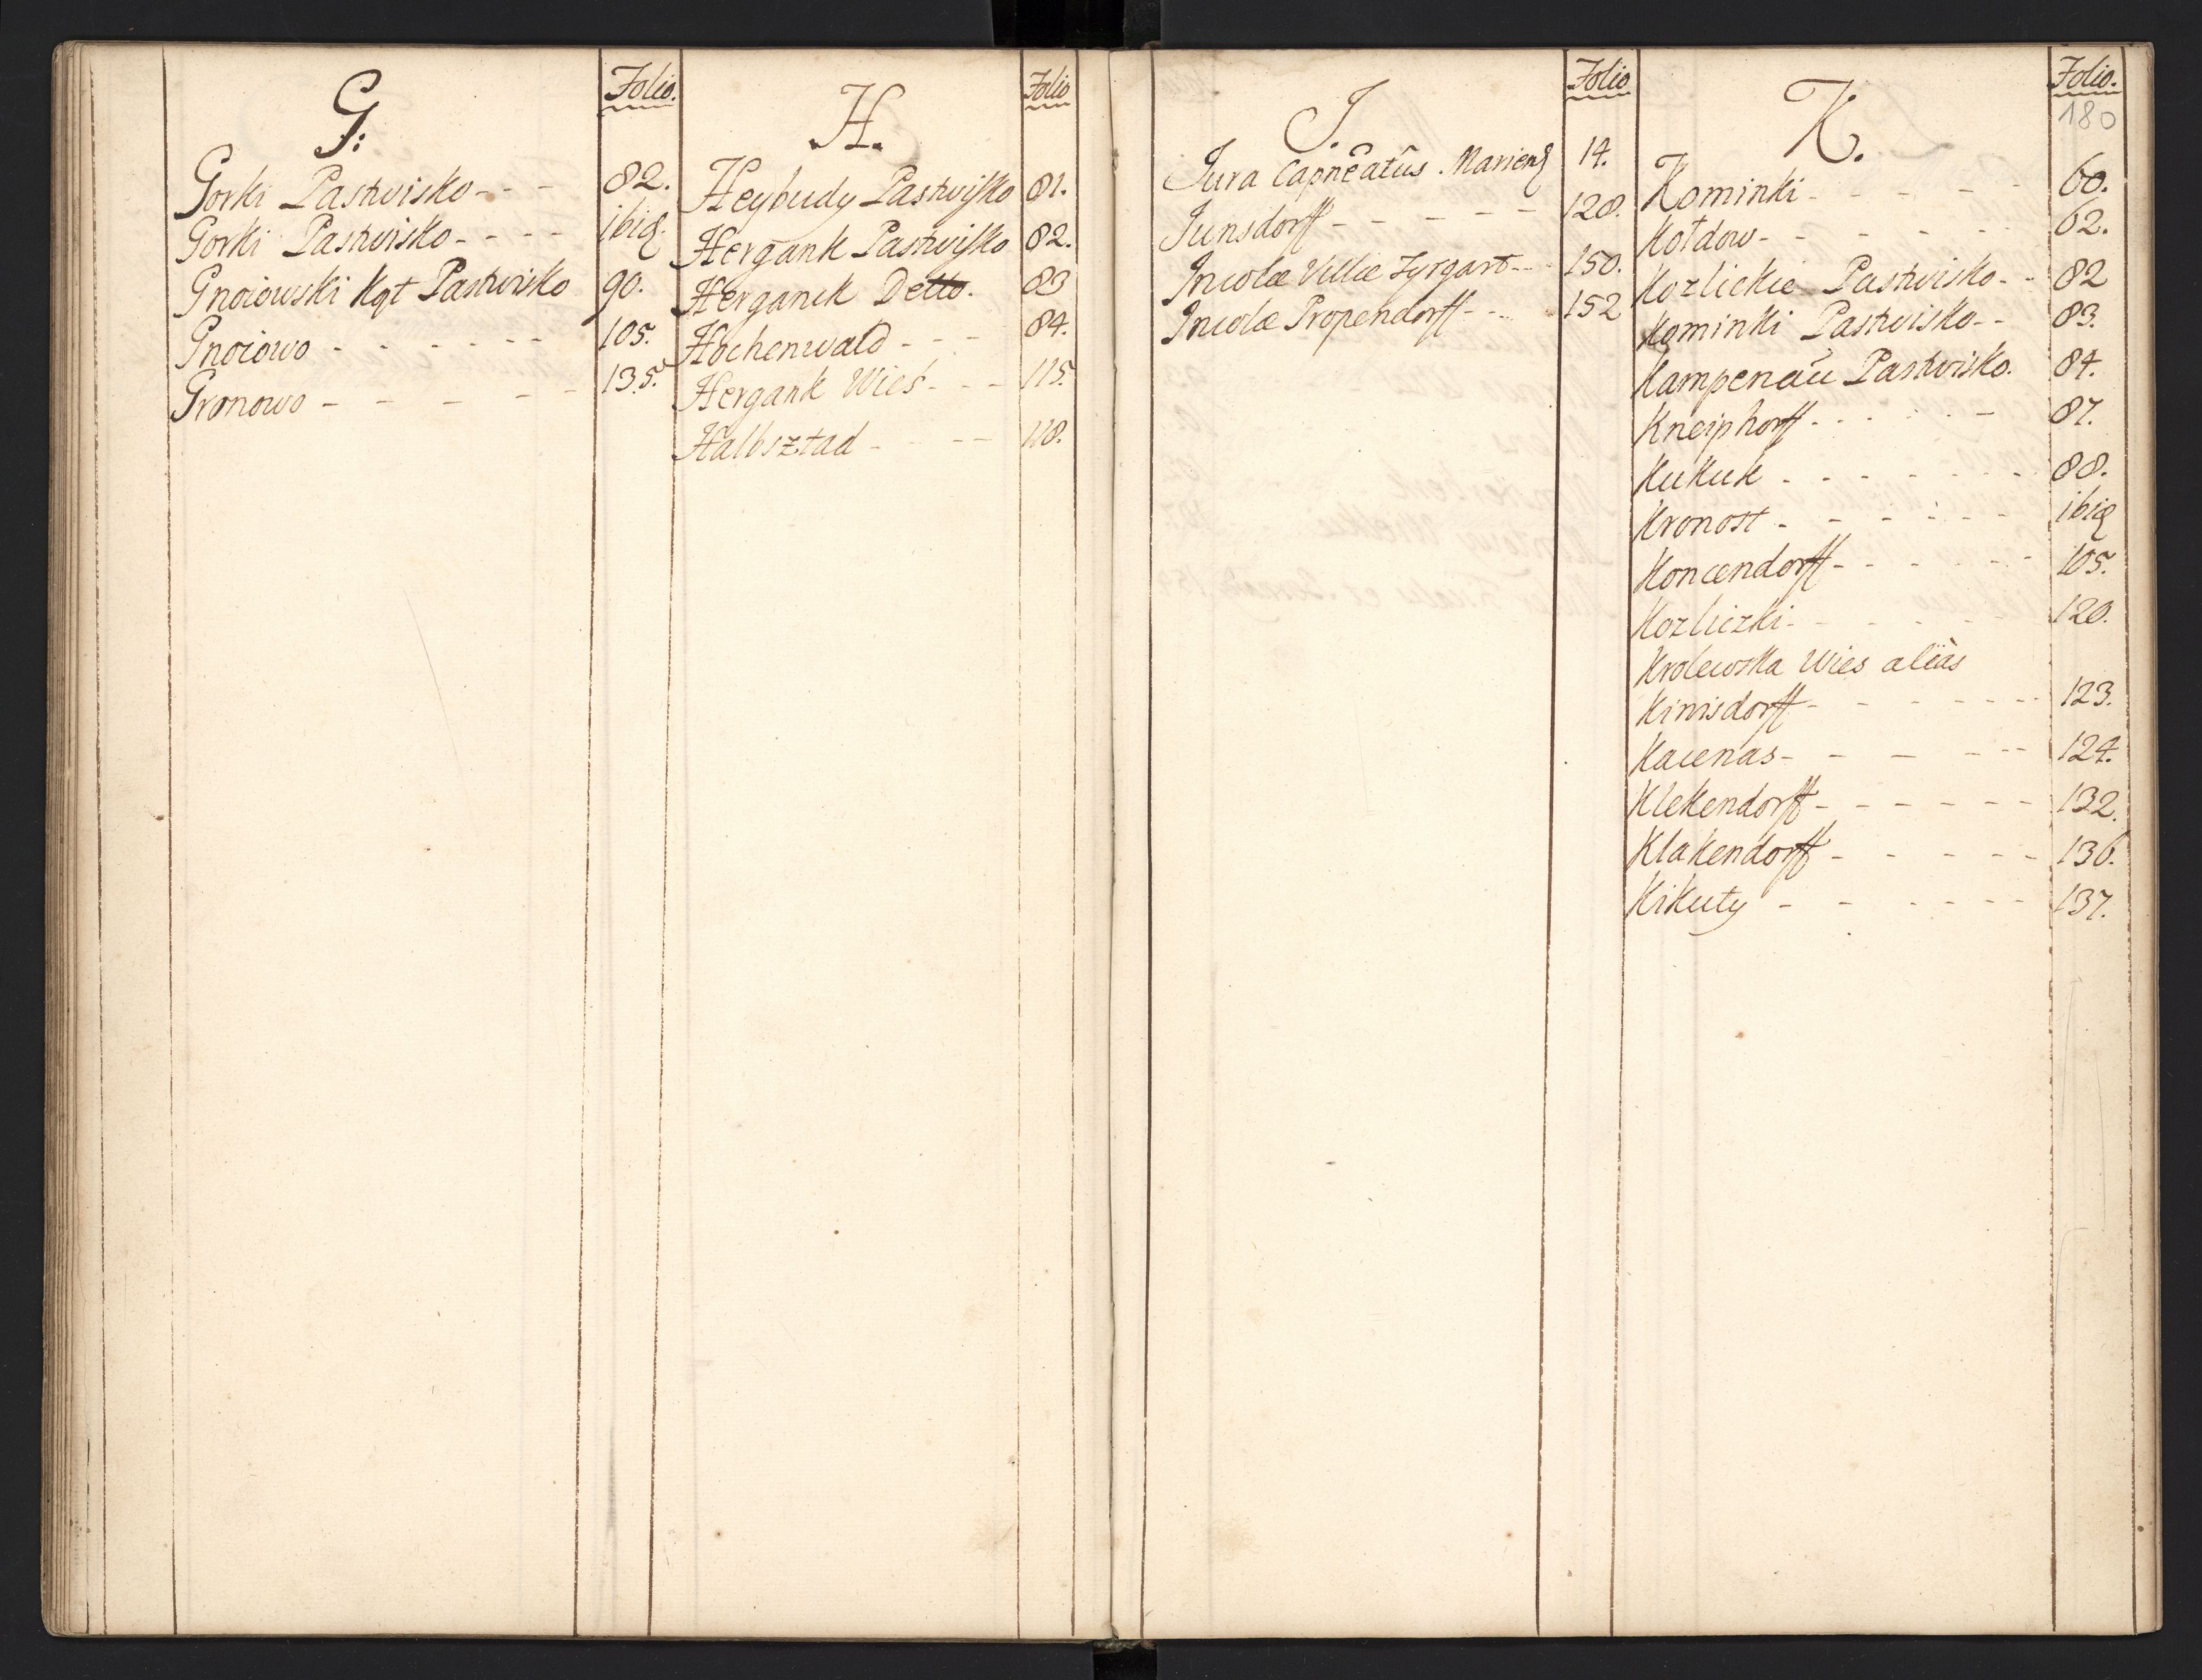 G:
Folio.
Gorki Pastwisko - - - 82.
Gorki Pastwisko - - - - ibid.
Gnoiowski Kąt Pastwisko 90.
Gnoiowo - - - - - - 105.
Gronowo - - - - - 135.
H.
Folio
Heybudy Pastwisko 81.
Hergank Pastwisko 82.
Herganek Detto. 83
Hochenwald - - - 84.
Hergank Wieś - - - 115.
Halbsztad - - - - 118.
J.
Folio
Jura Capneatûs. Marienb 14.
Junsdorff - - - - - 128.
Incolæ Villæ Tyrgart - - - 150.
Incolæ Propendorff - - - 152
K.
Folio.
180
Kominki - - - - - 60.
Kołdow - - - - - - 62.
Kozlickie Pastwisko - - 82
Kominki Pastwisko - - 83.
Kampenaŭ Pastwisko. 84.
Kneiphorff - - - - - 87.
Kukuk - - - - - - - 88.
Kronost - - - - - - - ibid
Koncendorff - - - - - - 105.
Kozliczki - - - - - - 120.
Krolewska Wies aliàs
Kinisdorff - - - - - - - 123.
Kacenas - - - - - - 124.
Klekendorff - - - - - - 132.
Klakendorff - - - - - - 136.
Kikuty - - - - - - 137.